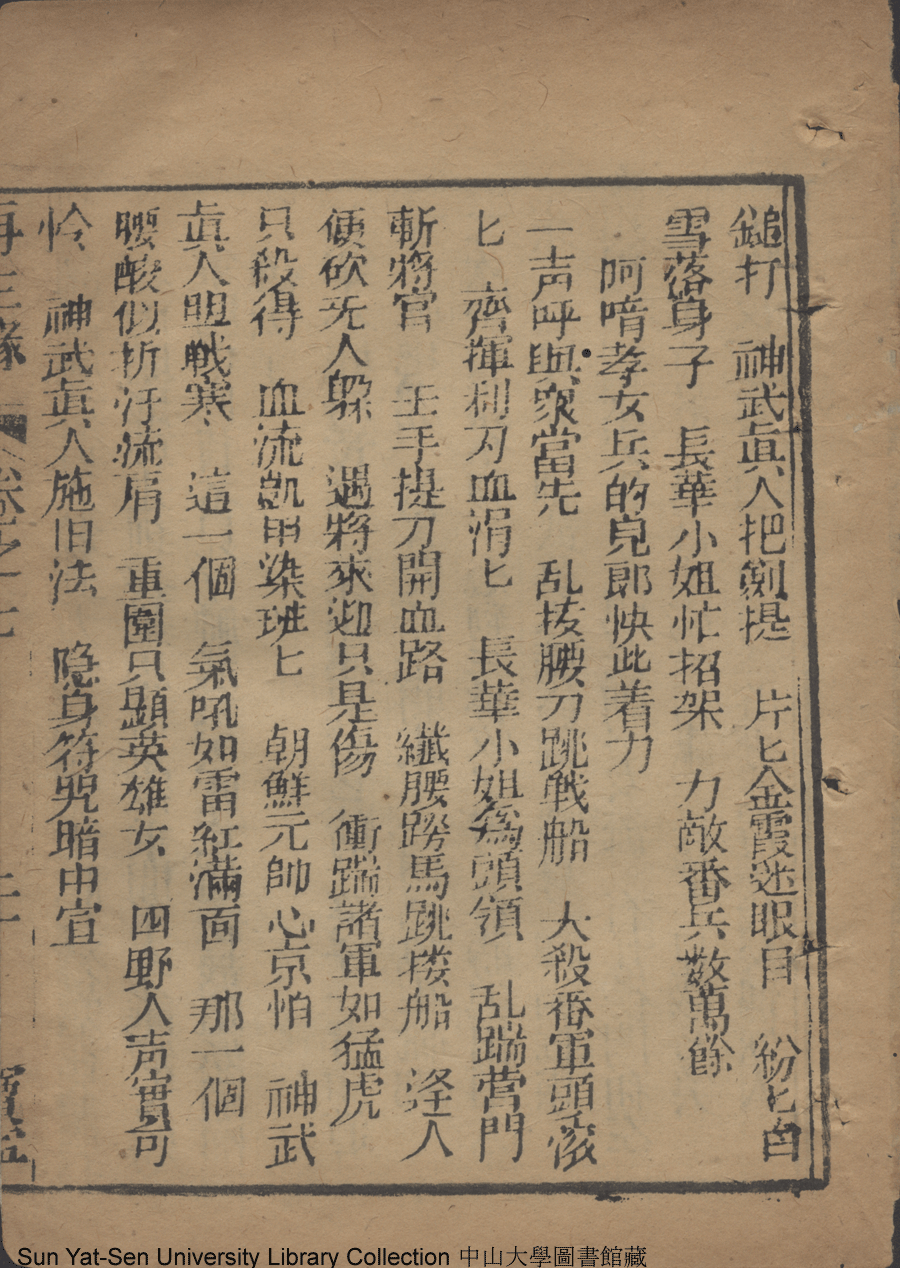 鎚打　神武眞人把劍提　片匕金霞迷眼目　紛匕白
雪落身子　長華小姐忙招架　力敵番兵数萬餘
阿唷孝女兵的兒郎快此着力
一声呼與衆當先　乱拔腰刀跳戰船　大殺番軍頭落
匕　齊揮利刃血涓匕　長華小姐爲頭領　乱踹营門
斬將官　王手提刀開血路　纖腰跨馬跳接船　逢人
便砍无人躲　遇將來迎只是傷　衝踹諸軍如猛虎
只殺得　血流凱甲染班匕　朝鮮元帥心京怕　神武
眞人胆戰寒　這一個　氣吼如雷紅滿面　那一個
腰酸似折汗流肩　重圍只顕英雄女　四野人声實可
怜　神武眞人施旧法　隐身符咒暗中宣
再生緣　卷之十七
Sun Yat-Sen University Library Collection 中山大學圖書館藏